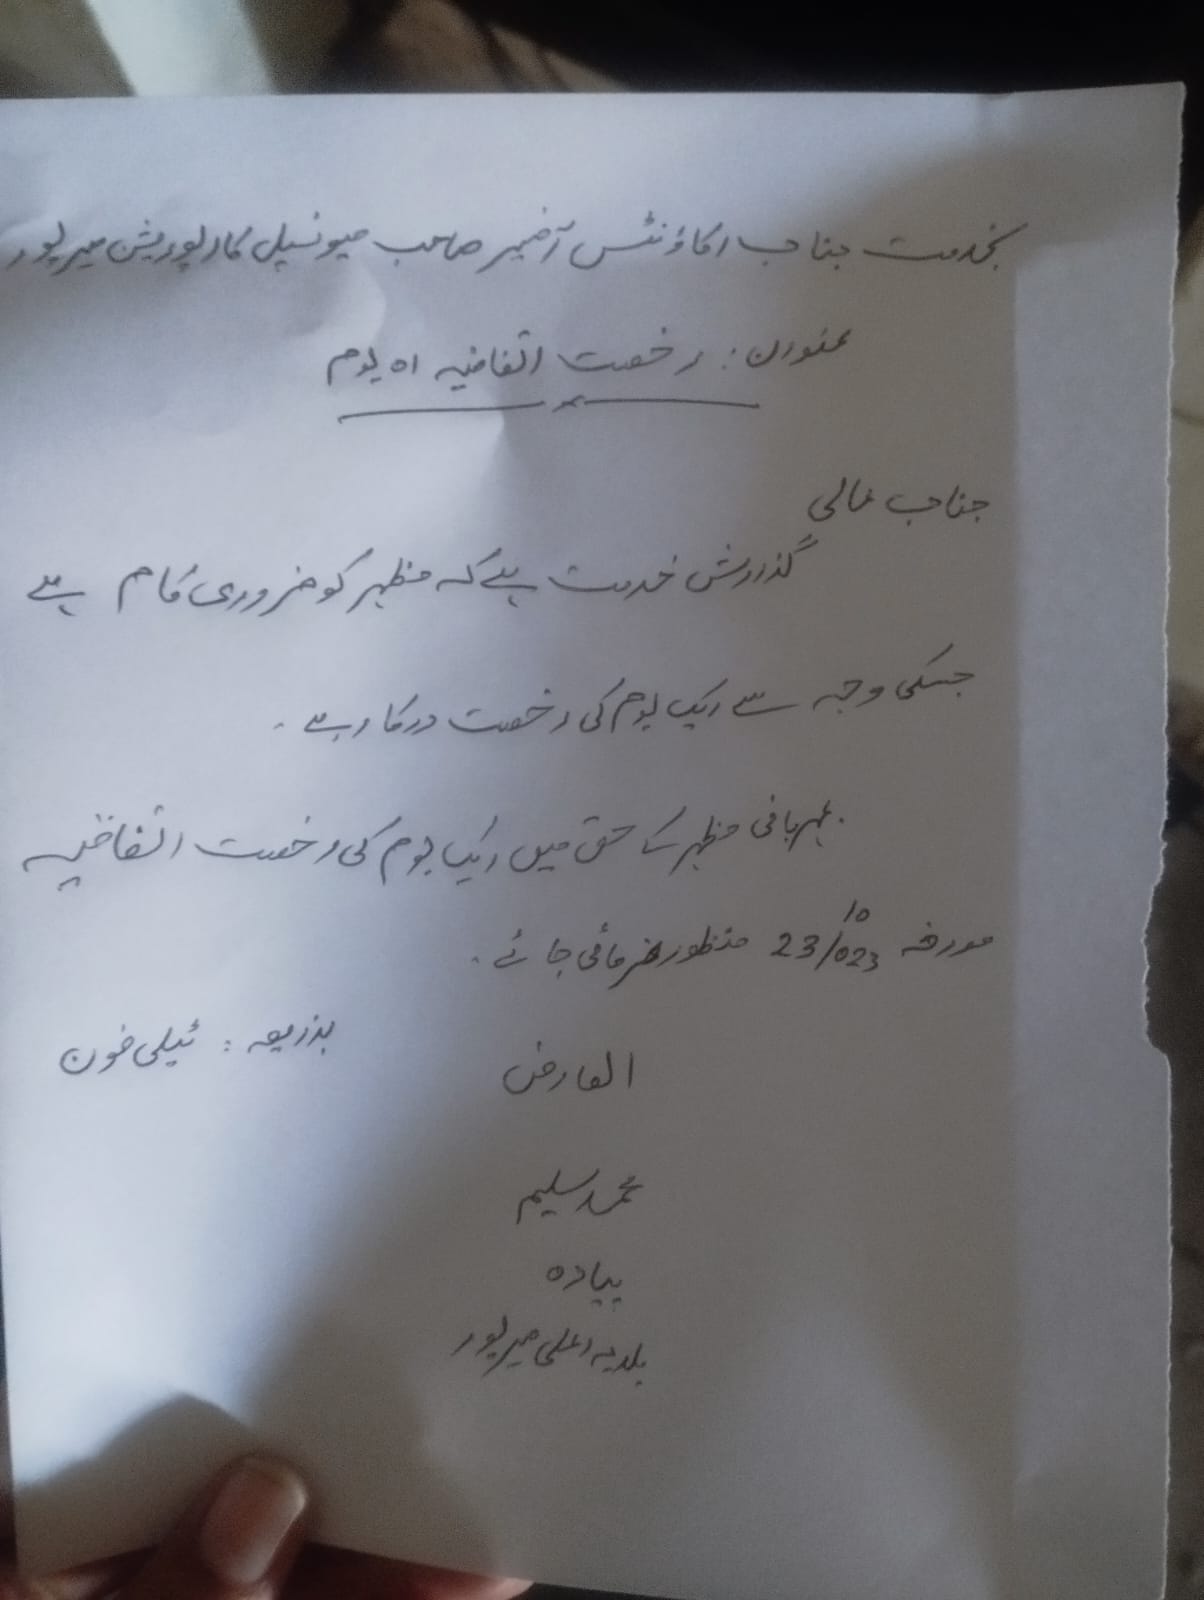 بخدمت جناب اکاؤنٹس آفیسر صاحب میونسپل کارپوریشن میرپور
عنوان: رخصت اتفاقیہ 01 یوم
جناب عالی
گذارش خدمت ہے کہ مظہر کو ضروری کام ہے
جسکی وجہ سے ایک یوم کی رخصت درکار ہے ۔
بمہربانی مظہر کے حق میں ایک یوم کی رخصت اتفاقیہ
مورخہ 23/10/023 منظور فرمائی جائے ۔
بذریعہ : ٹیلی فون
العارض
محمد سلیم
پیادہ
بلدیہ اعلی میرپور